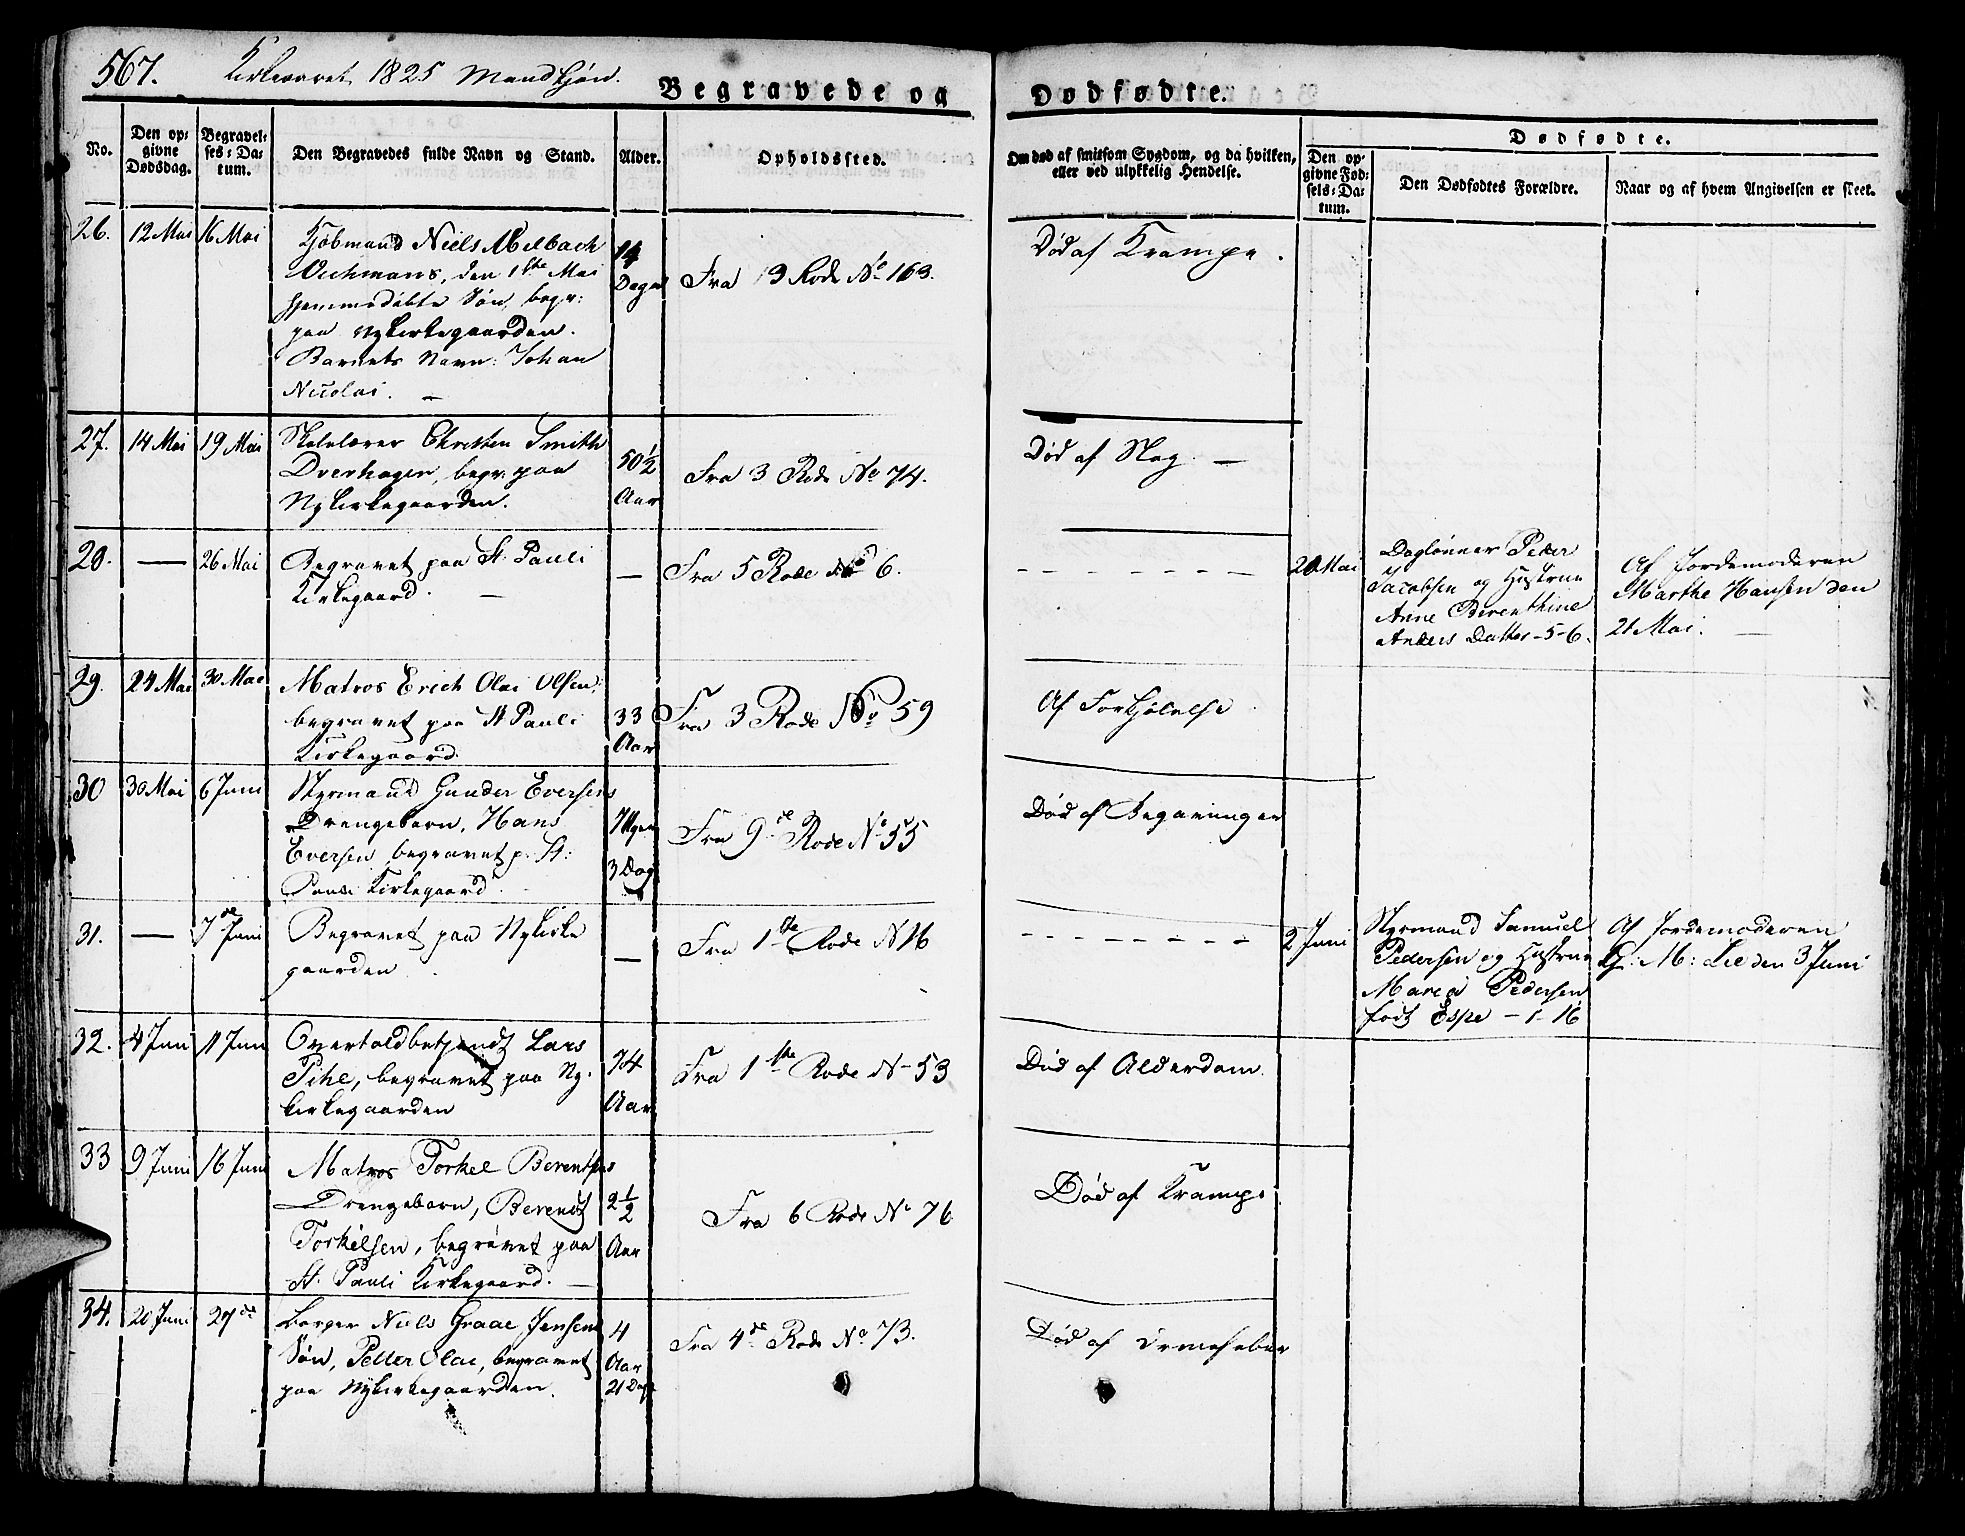 567. Kirkeaaret 1825 Mandkjøn.
Begravede og Dødfødte.
No.
Den op-
givne
Dødsdag.
Begravel-
ses-Da-
tum.
Den Begravedes fulde Navn og Stand.
Alder.
Opholdssted.
Om død af smitsom Sygdom, og da hvilken,
eller ved ulykkelig Hendelse.
Dødfødte.
Den op-
givne Fød-
sels-Da-
tum.
Den Dødfødtes Forældre.
Naar og af hvem Angivelsen er skeet.
26. 12 Mai 16 Mai
Kjøbmand Niels
den 1ste Mai
hjemmedøbte Søn, begr:
paa Nykirkegaarden.
Barnets Navn: Johan
Nicolai. —
14
Dage
Fra 13 Rode No 163.
Død af Krampe.
27. 14 Mai 19 Mai
Skolelærer Christen Smith
Overhagen, begr. paa
Nykirkegaarden.
50 1/2
Aar
Fra 3 Rode No 74.
Død af Slag. —
28. — 26 Mai
Begravet paa St. Pauli
Kirkegaard. —
—
Fra 5 Rode No 6.
— — — — — — —
20 Mai
Daglønner Peder
Jacobsen og Hustrue
Anne Berenthine
Anders Datter - 5 - 6.
Af Jordemoderen
Marthe Hansen den
21 Mai. —
29. 24 Mai 30 Mai
Matros Erich Olai Olsen,
begravet paa St Pauli
Kirkegaard.
33
Aar
Fra 3 Rode No 59
Af Forkjølelse
30 30 Mai 6 Juni
Styrmand Gunder Eversens
Drengebarn, Hans
Eversen, begravet p. St:
Pauli Kirkegaard.
7 Uger
3 Dag
Fra 9de Rode No 55
Død af Begavninger
31. — 7de Juni
Begravet paa Nykirke
gaarden.
—
Fra 1ste Rode N 16
— — — — — — —
2 Juni
Styrmand Samuel
Pedersen og Hustrue
Maria Pedersen
født Espe - 1 - 16
Af Jordemoderen
G: M: Lie den 3 Juni
32. 4 Juni 11 Juni
Overtoldbetjendt Lars
Pihl, begravet paa Ny-
kirkegaarden
74
Aar
Fra 1ste Rode N 53
Død af Alderdom.
33 9 Juni 16 Juni
Matros Torkel Berentsens
Drengebarn, Berendt
Torkelsen, begravet paa
St. Pauli Kirkegaard. —
2 1/2
Aar
Fra 6 Rode No 76
Død af Krampe
34. 20 Juni 27de
Borger Niels Graae Jensens
Søn, Petter Olai, begravet
paa Nykirkegaarden.
4
Aar
21 Dage
Fra 4de Rode No 73.
Død af Ormefeber